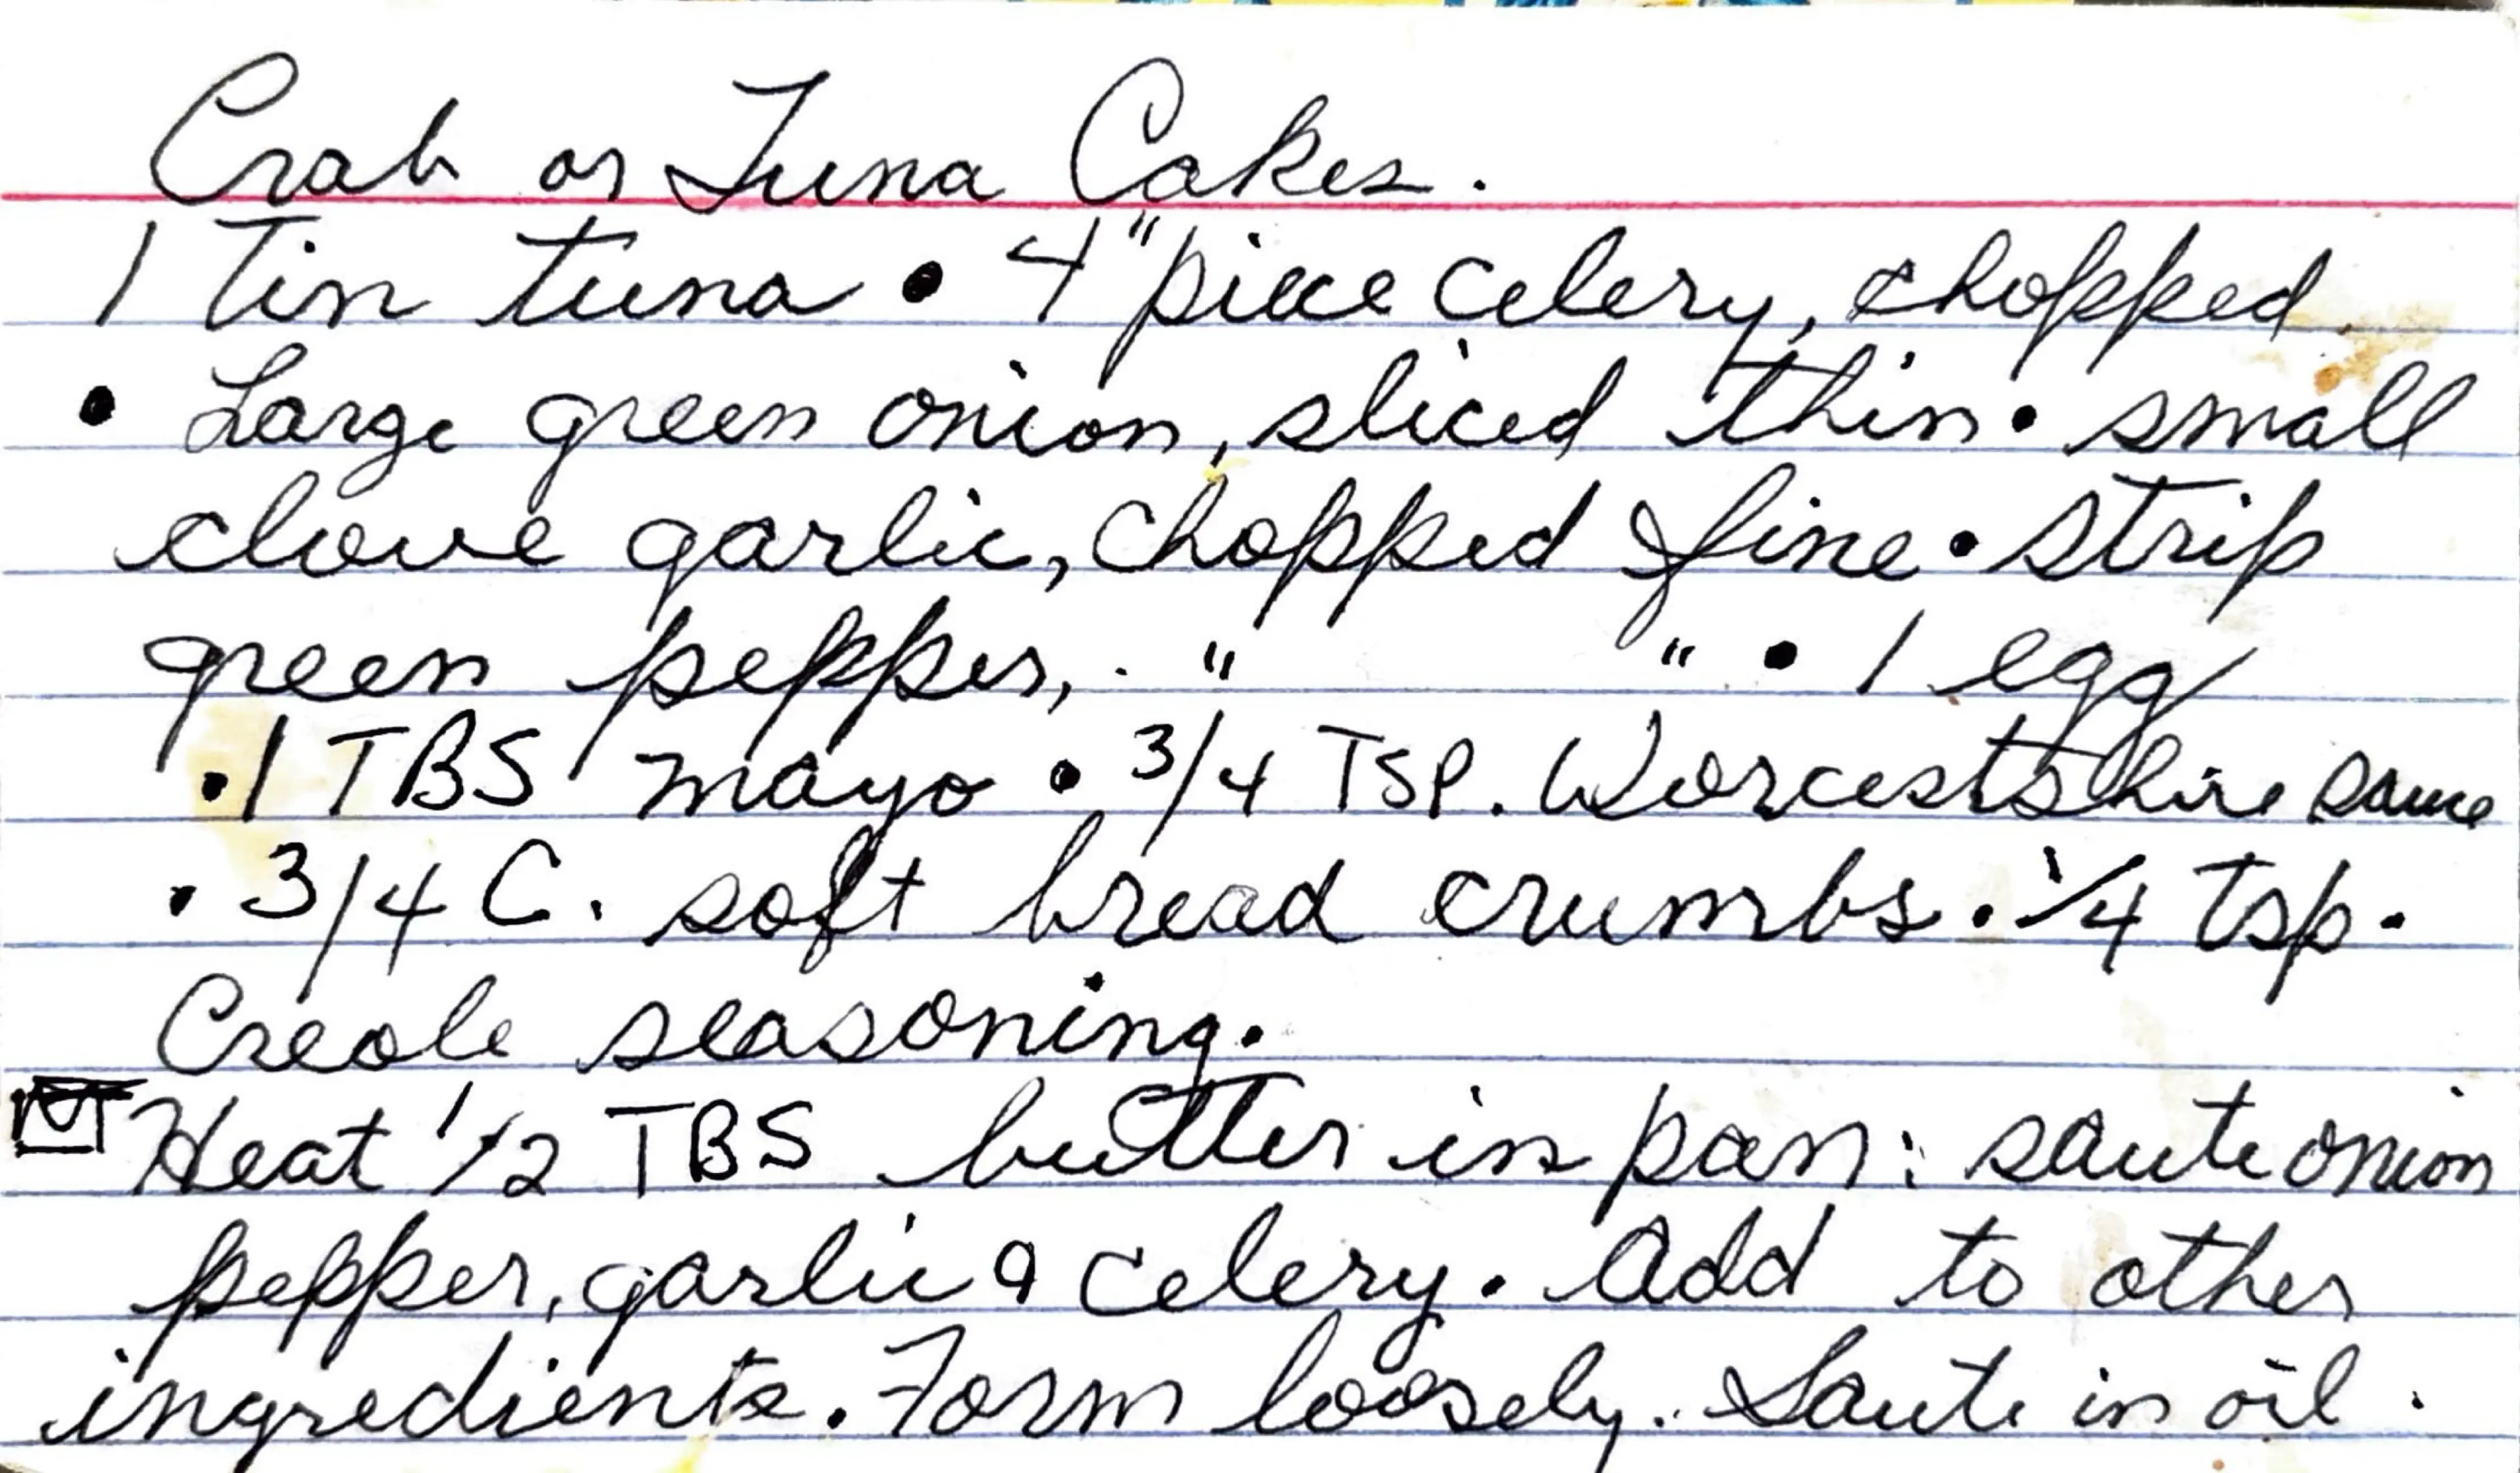 Crab or Tuna Cakes.
1 Tin tuna • 4" piece celery, chopped
• Large green onion, sliced thin • small
clove garlic, chopped fine • strip
green pepper, " " • 1 egg
• 1 TBS mayo • 3/4 TSP. Worcestshire sauce
• 3/4 C. soft bread crumbs • 1/4 tsp.
Creole seasoning.
Heat 1/2 TBS butter in pan: saute onion
pepper, garlic & celery. Add to other
ingredients. Form loosely. Saute in oil.